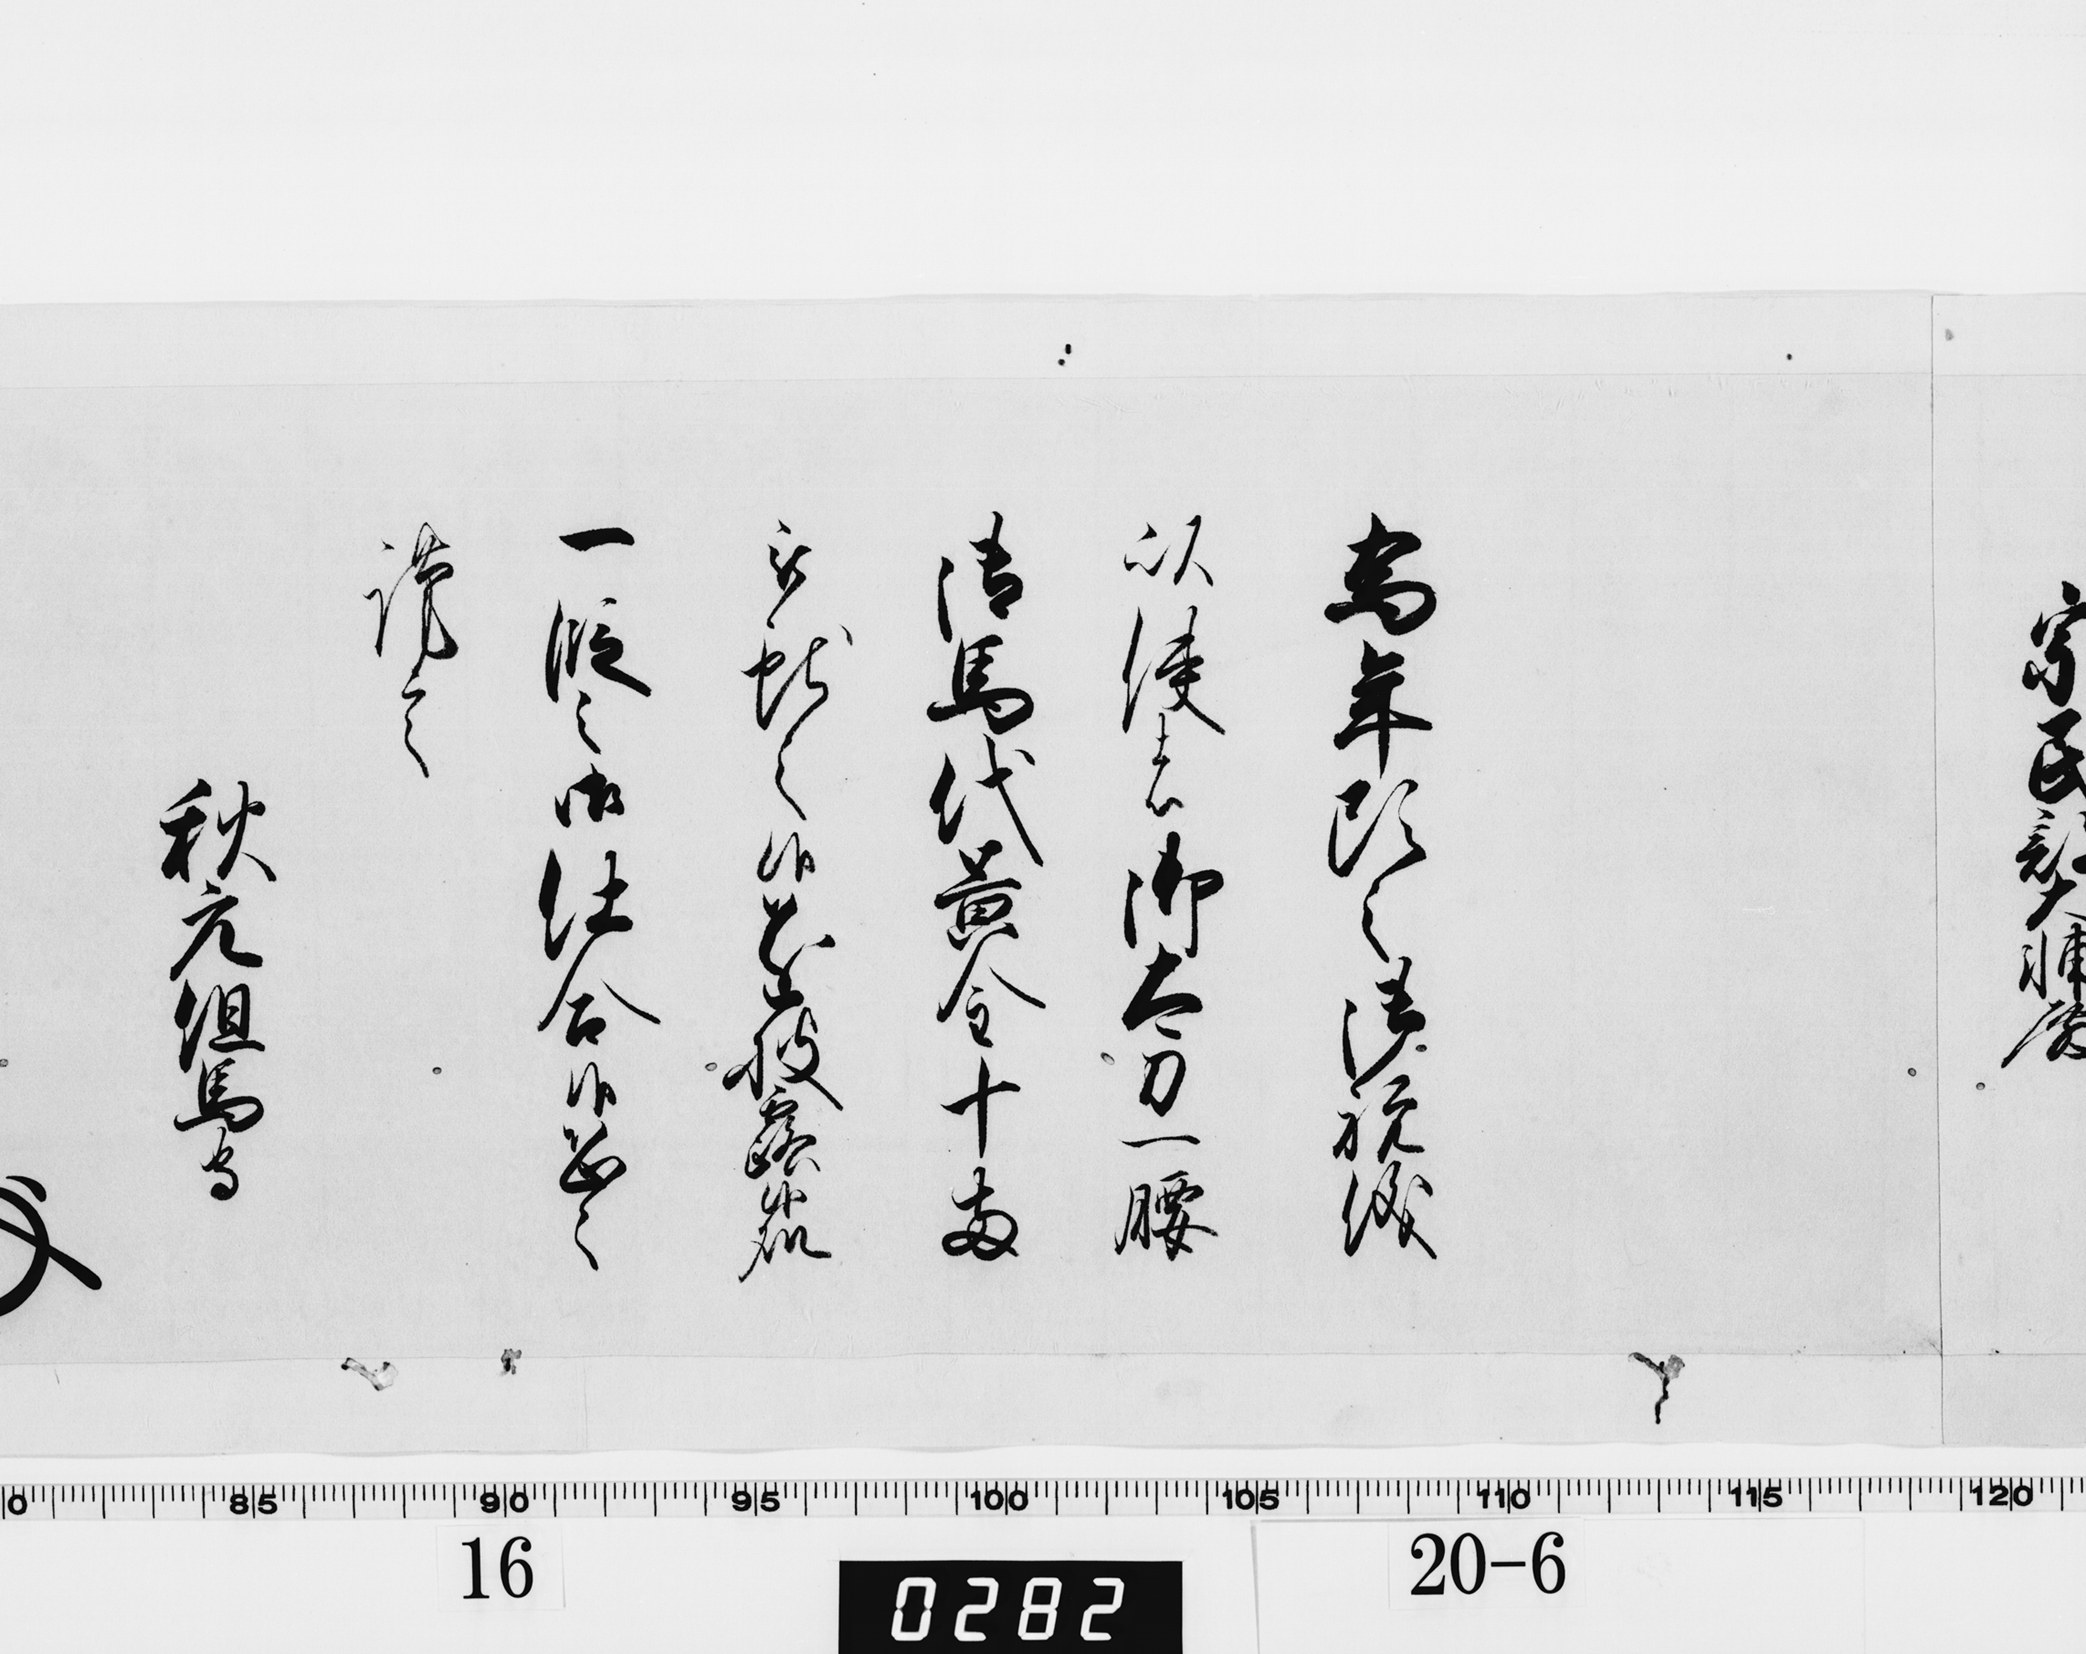 宗氏■大輔殿
為年頭之御祝儀
以使者御太刀一腰
御馬代黄金十両
被献之候遂披露候処
一段之御仕合候恐々
謹言
秋元但馬守
0 85 90 95 100 105 110 115 120
16
0282
20-6